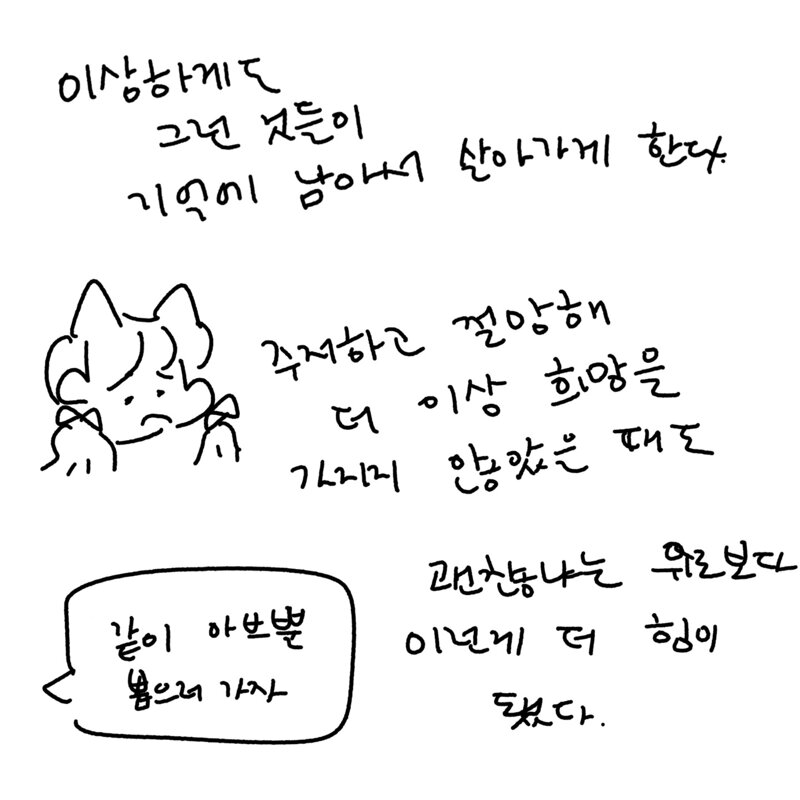 이상하게도
그런 것들이
기억에 남아서 살아가게 한다.
주저하고 절망해
더 이상 희망을
가지지 않았은 때도
같이 아브뿔
뽑으러 가자
괜찮냐는 위로보다
이런게 더 힘이
됐었다.